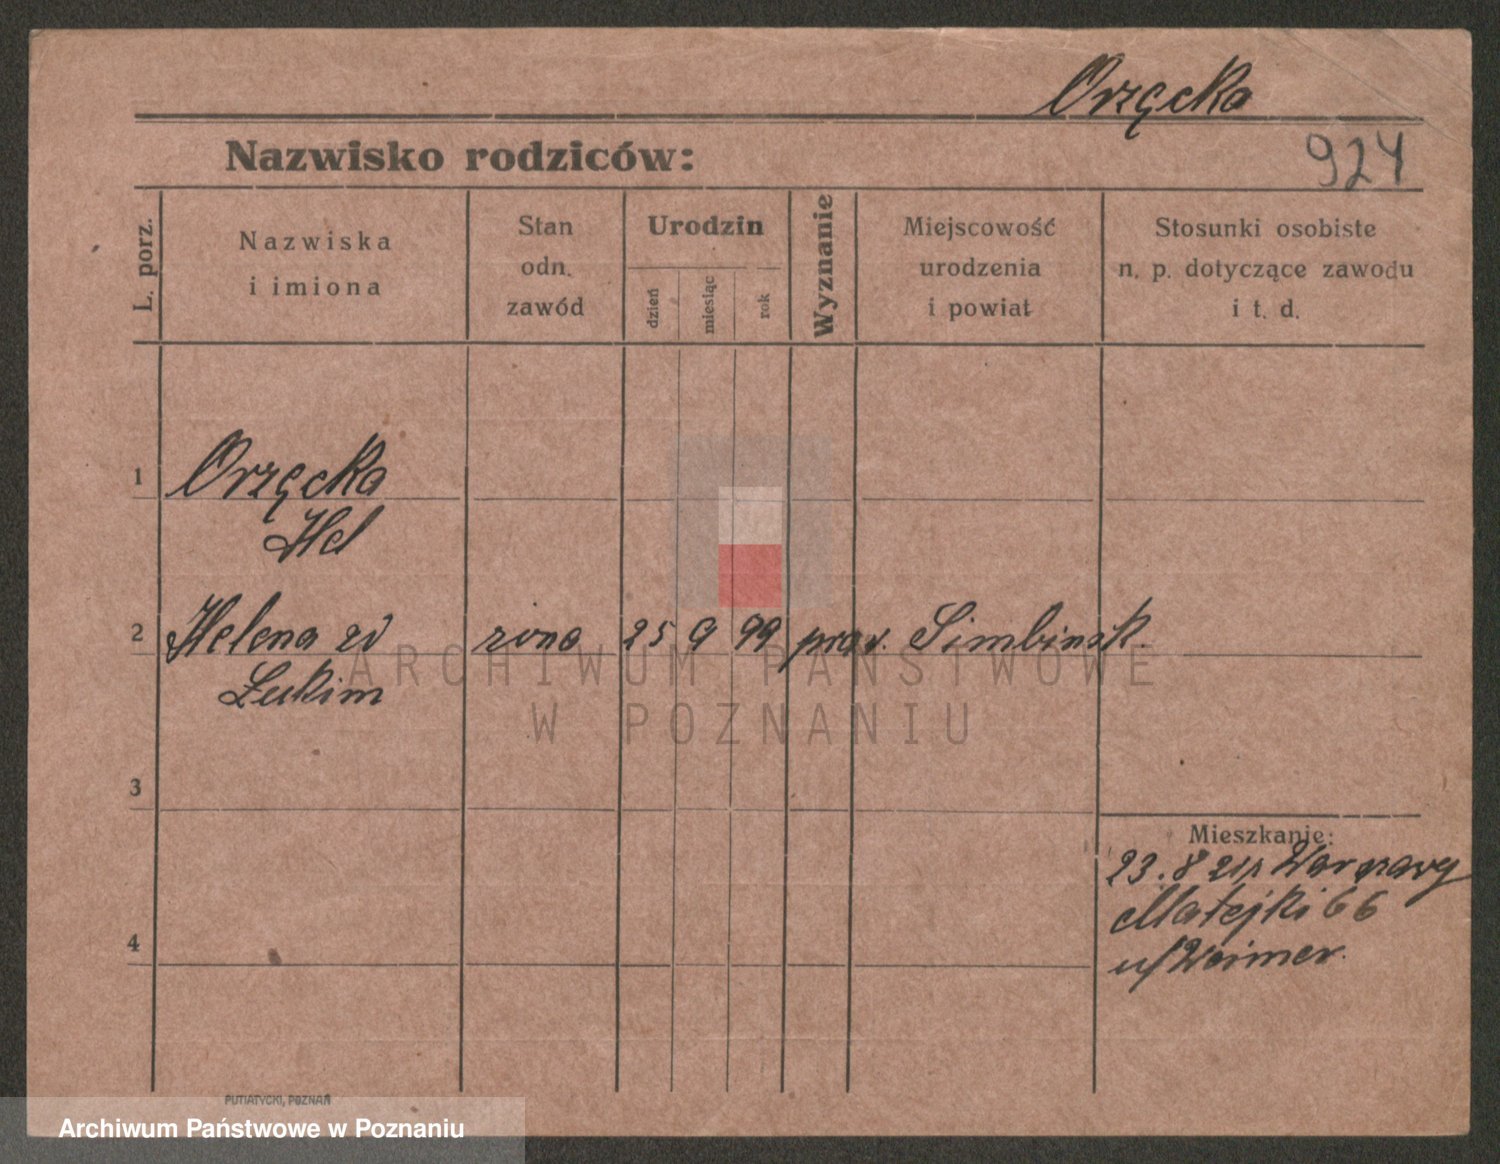 Orzęcka
Nazwisko rodziców:
924
L. porz.
Nazwiska
i imiona
Stan
odn.
zawód
Urodzin
dzień
miesiąc
rok
Wyznanie
Miejscowość
urodzenia
i powiat
Stosunki osobiste
n. p. dotyczące zawodu
i t. d.
1 Orzęcka
Hel
2 Helena zd żona 25 9 99 praw. Simbinsk.
Łukim
3
Mieszkanie:
23. 8 21 Warszawy
Matejki 66
u/Weimer.
4
ARCHIWUM PAŃSTWOWE
W POZNANIU
PUTIATYCKI, POZNAŃ
Archiwum Państwowe w Poznaniu